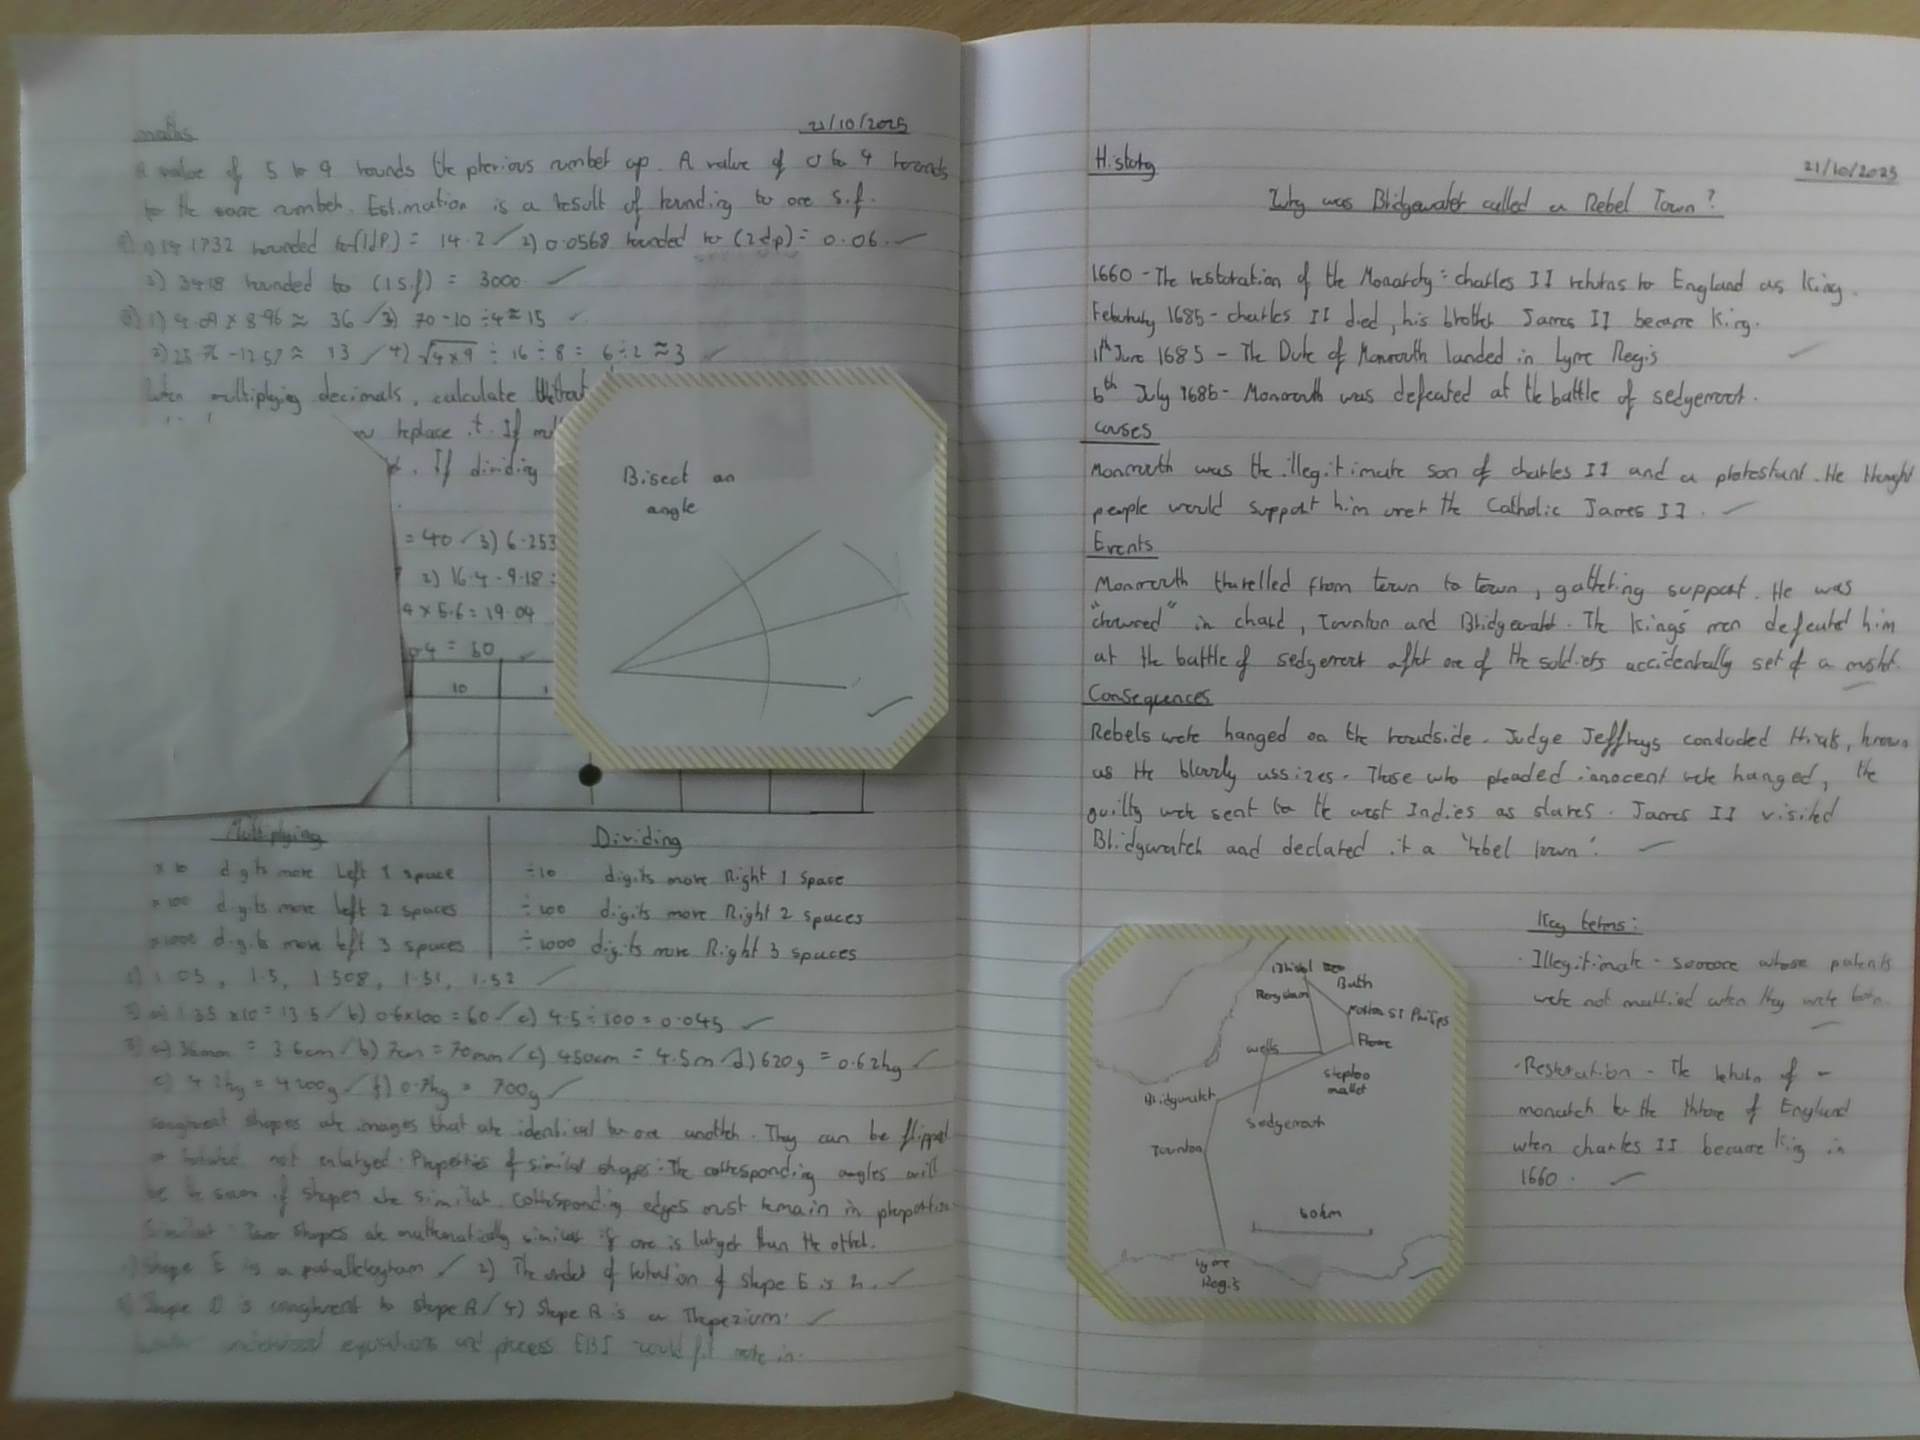 maths
21/10/2025
A value of 5 to 9 rounds the previous number up. A value of 0 to 4 rounds
to the same number. Estimation is a result of rounding to one s.f.
1) 14.1732 rounded to (1dp) = 14.2 2) 0.0568 rounded to (2dp) = 0.06.
3) 3418 rounded to (1 s.f) = 3000
1) 4.09 x 8.96 ≈ 36 3) 70-10 ÷4 ≈ 15
2) 25.76 - 12.57 ≈ 13 4) √4x9 ÷ 16 ÷ 8 = 6÷2 ≈ 3
When multiplying decimals, calculate without
replace it. If
. If dividing
= 40 3) 6.253
2) 16.4 - 9.18 =
4 x 5.6 = 19.04
04 = 60
10 1
Multiplying
Dividing
x 10 digits move Left 1 space
÷10 digits move Right 1 space
x100 digits move left 2 spaces
÷100 digits move Right 2 spaces
x1000 digits move left 3 spaces
÷1000 digits move Right 3 spaces
1.05, 1.5, 1.508, 1.51, 1.52
a) 1.35 x10 = 13.5 b) 0.6x100 = 60 c) 4.5÷100 = 0.045
a) 36mm = 3.6cm b) 7cm = 70mm c) 450cm = 4.5m d) 620g = 0.62kg
e) 4.2kg = 4200g f) 0.7kg = 700g
congruent shapes are images that are identical to one another. They can be flipped
or rotated not enlarged. Properties of similar shapes: The corresponding angles will
be the same if shapes are similar. corresponding edges must remain in proportion
Similar: Two shapes are mathematically similar if one is larger than the other.
1) Shape E is a parallelogram 2) The order of rotation of shape E is 2.
3) Shape D is congruent to shape A 4) Shape A is a Trapezium.
understood equations and process EBI could
Bisect an
angle
History
21/10/2025
Why was Bridgewater called a Rebel Town?
1660 - The restoration of the Monarchy: charles II returns to England as King.
Feburury 1685 - charles II died, his brother James II became King.
11th June 1685 - The Duke of Monmouth landed in Lyme Regis
6th July 1685 - Monmouth was defeated at the battle of sedgemoor.
causes
Monmouth was the illegitimate son of charles II and a protestant. He thought
people would support him over the Catholic James II.
Events
Monmouth travelled from town to town, gathering support. He was
"crowned" in chard, Taunton and Bridgewater. The King's men defeated him
at the battle of sedgemoor after one of the soldiers accidentally set of a
Consequences
Rebels were hanged on the roadside. Judge Jeffreys conducted trials, known
as the bloody assizes. Those who pleaded innocent were hanged, the
guilty were sent to the west Indies as slaves. James II visited
Bridgwater and declared it a 'rebel town'.
Bristol
Bath
Norton ST Philips
Frome
Wells
Shepton
mallet
Bridgwater
Sedgemoor
Taunton
60km
Lyme
Regis
Key terms:
· Illegitimate - someone whose parents
were not married when they were born.
· Restoration - The return of a
monarch to the throne of England
when charles II became King in
1660.